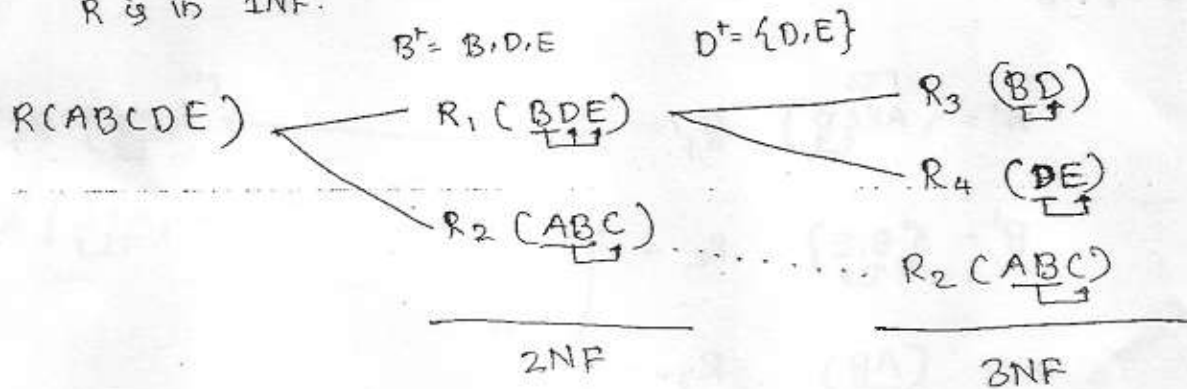 R is in 1NF.
B⁺ = B,D,E
D⁺ = {D,E}
R(ABCDE)
R₁ (BDE)
R₃ (BD)
R₄ (DE)
R₂ (ABC)
R₂ (ABC)
2NF
3NF